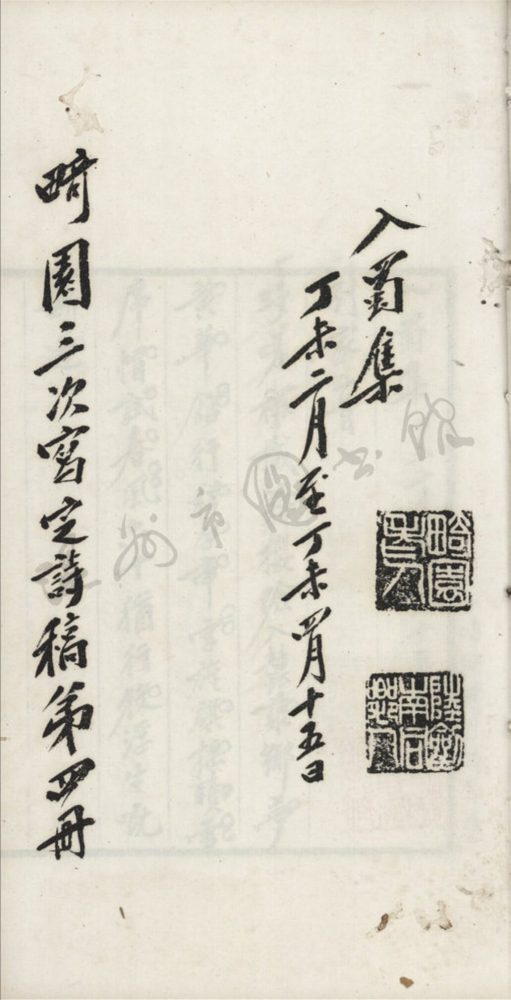 入蜀集
丁未二月至丁未四月十五日
畸園三次寫定詩稿第四冊
畸園
老人